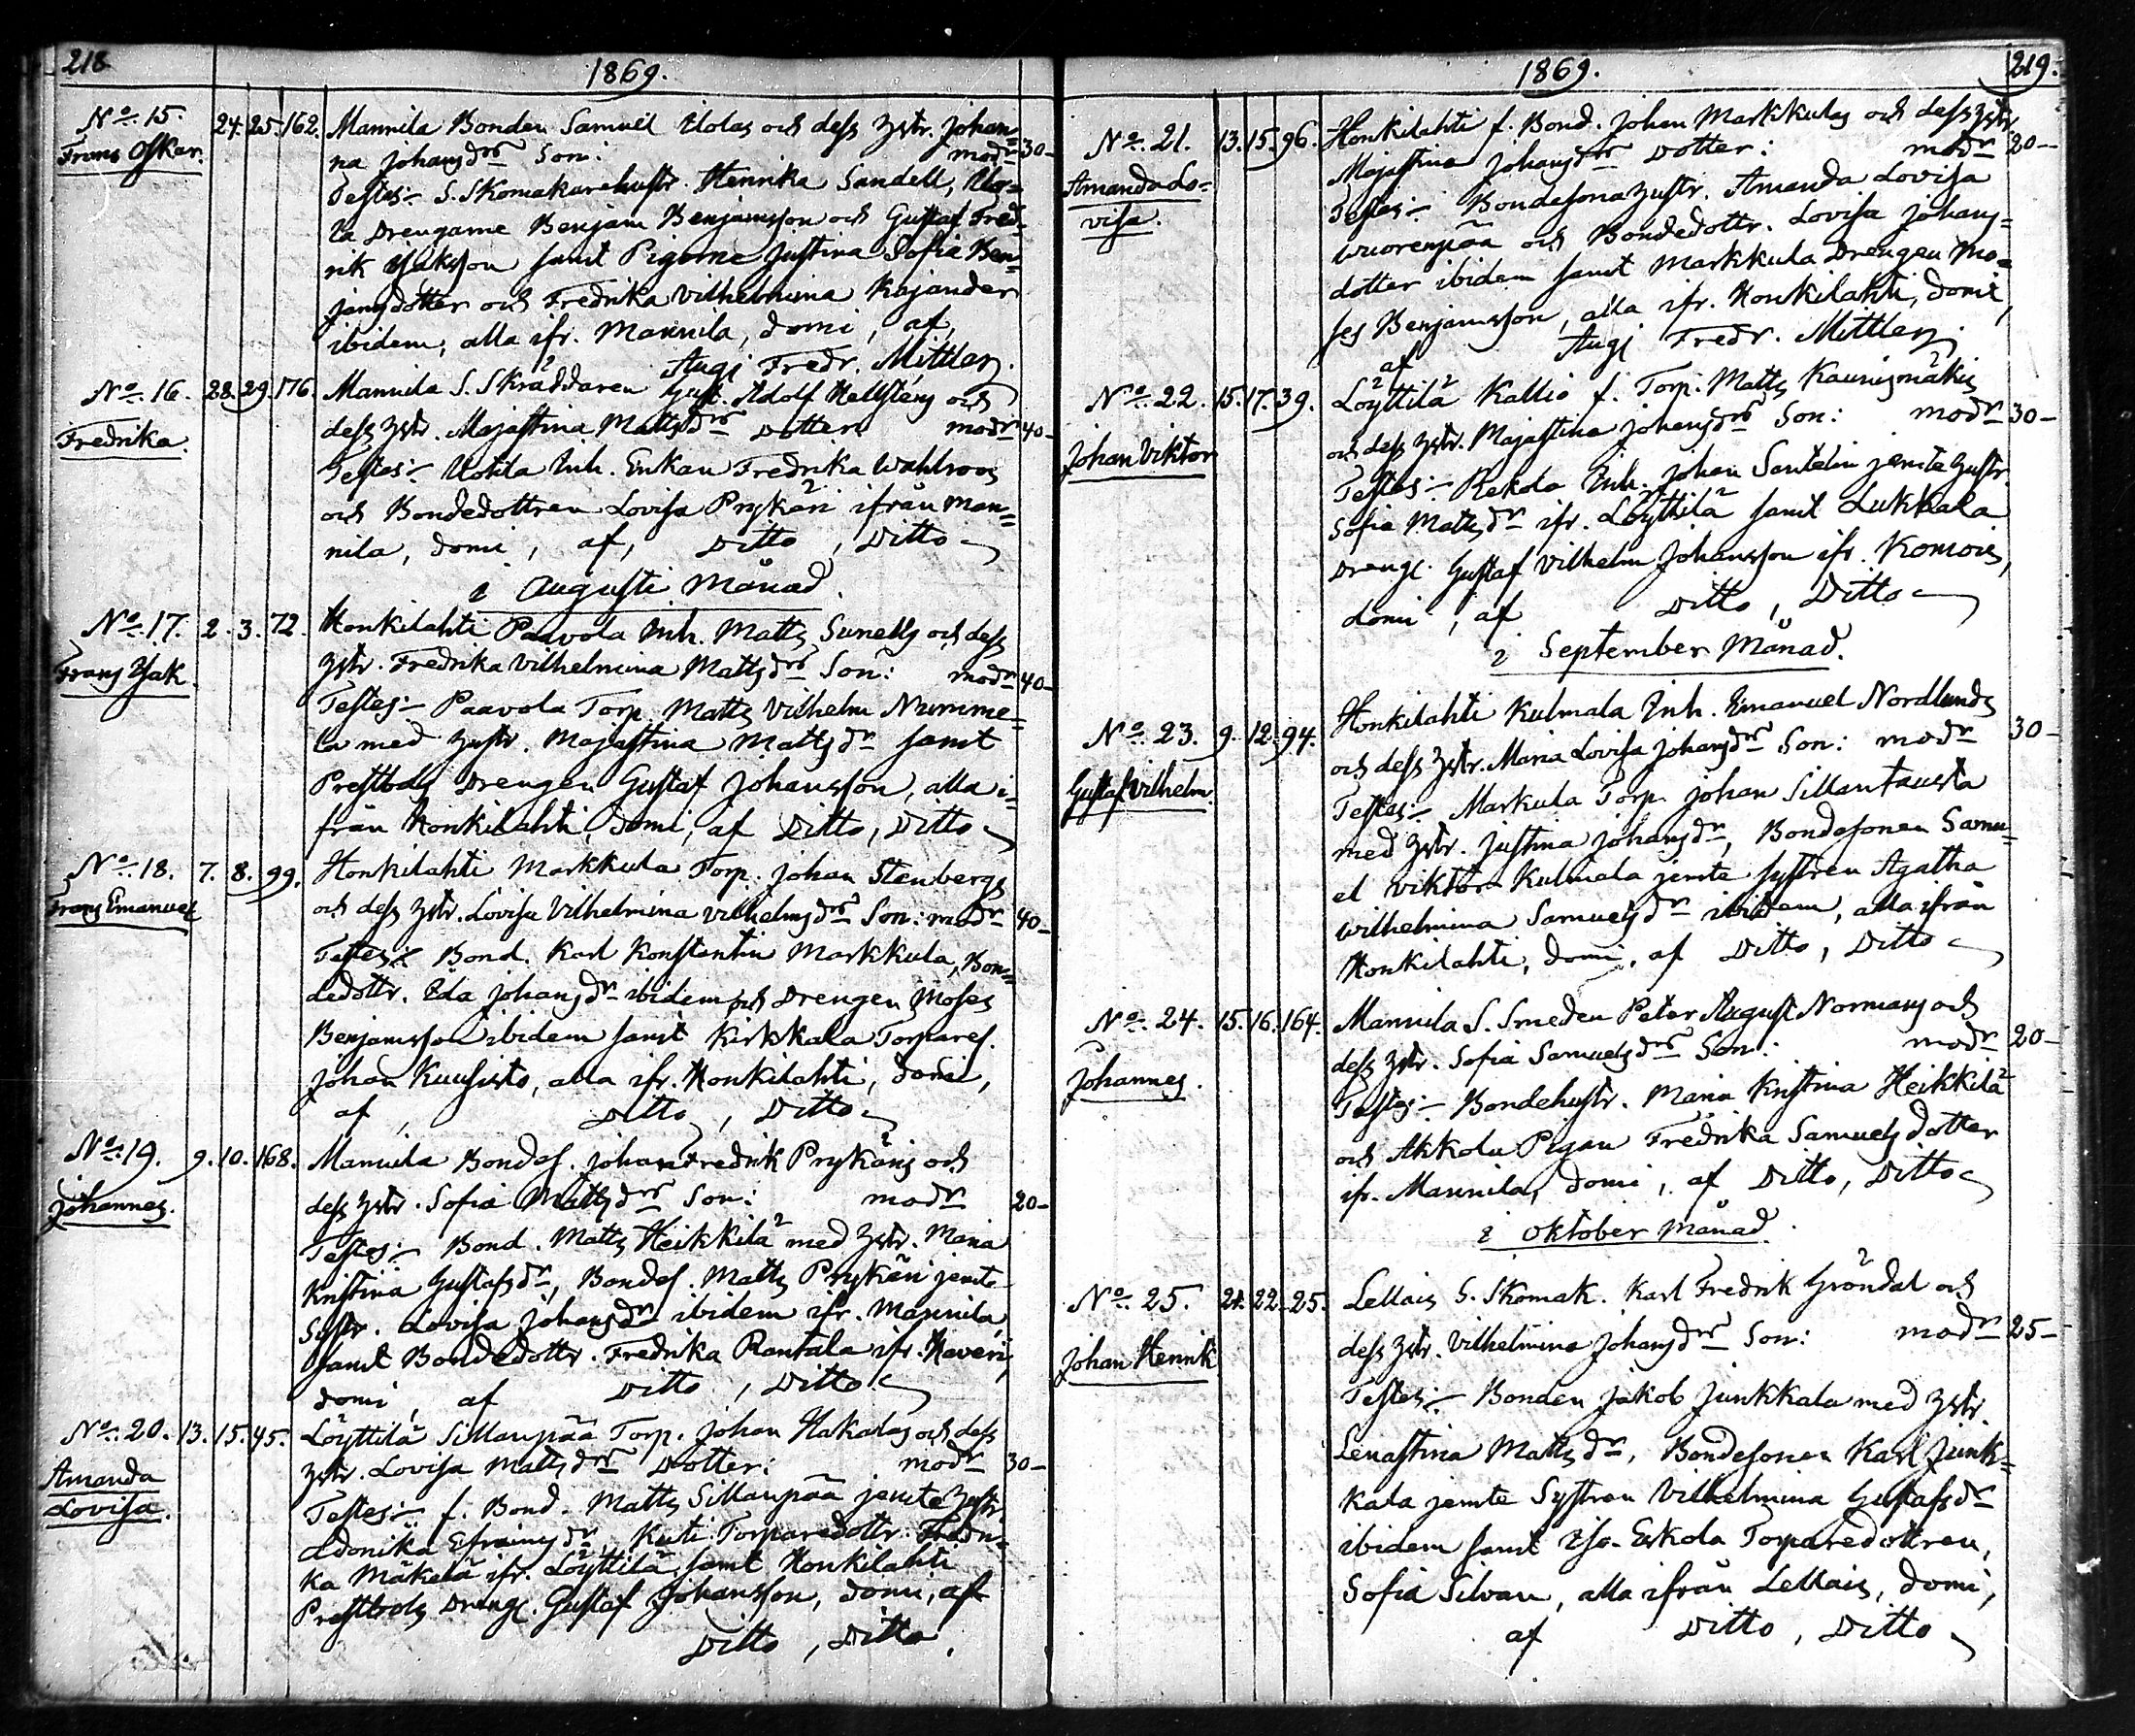 218
1869.
No. 15. 24. 25. 162. Mannila Bonden Samuel Uolas och dess hstr. Johan=
Frans Oskar. na Johansdrs Son: modr 30-
Testes:- S. Skomakarehustr. Henrika Sandell, Uo=
la Drengarne Benjam Benjamsson och Gustaf Fred=
rik Isaksson samt Pigorna Justina Sofia Ben=
jamsdotter och Fredrika Vilhelmina Kajander
ibidem, alla ifr. Mannila, domi, af,
Augi Fredr. Mittler.
No. 16. 28. 29. 176. Mannila S. Skräddaren Gust. Adolf Hellsténs och
Fredrika. dess hstr. Majastina Mattsdrs Dotter: modr 40-
Testes:- Uotila Inh. Enkan Fredrika Wahlroos
och Bondedottren Lovisa Prykäri ifrån Man=
nila, domi, af, Ditto, Ditto
i Augusti Månad.
No. 17. 2. 3. 72. Honkilahti Paavola Inh. Matts Sunells och dess
Frans Isak. hstr. Fredrika Vilhelmina Mattsdrs Son: modr 40-
Testes:- Paavola Torp. Matts Vilhelm Numme=
la med hustr. Majastina Mattsdr samt
Prestbols Drengen Gustaf Johansson, alla i=
från Honkilahti, domi, af Ditto, Ditto
No. 18. 7. 8. 99. Honkilahti Markkula Torp. Johan Stenbergs
Frans Emanuel och dess hstr. Lovisa Vilhelmina Vilhelmsdrs Son: modr 40-
Testes:- Bond. Karl Konstantin Markkula, Bon=
dedottr. Ida Johansdr ibidem och Drengen Moses
Benjamsson ibidem samt Kirkkala Torpares.
Johan Kuusisto, alla ifr. Honkilahti, domi,
af, Ditto, Ditto
No. 19. 9. 10. 168. Mannila Bondes. Johan Fredrik Prykäris och
Johannes. dess hstr. Sofia Mattsdrs Son: modr 20-
Testes:- Bond. Matts Heikkilä med hstr. Maria
Kristina Gustafsdr, Bondes. Matts Prykäri jemte
Systr. Lovisa Johansdr ibidem ifr. Mannila,
samt Bondedottr. Fredrika Rantala ifr. Naveri,
domi, af Ditto, Ditto
No. 20. 13. 15. 45. Löyttilä Sillanpää Torp. Johan Hakalas och dess
Amanda hstr. Lovisa Mattsdrs Dotter: modr 30-
Lovisa. Testes:- f. Bond. Matts Sillanpää jemte hustr.
Adonika Efraimsdr, Kuti Torparedottr. Fredri=
ka Mäkelä ifr. Löyttilä, samt Honkilahti
Prestbols Dreng. Gustaf Johansson, domi, af
Ditto, Ditto,
1869. 219.
No. 21. 13. 15. 96. Honkilahti f. Bond. Johan Markkulas och dess hstr.
Amanda Lo= Majastina Johansdrs Dotter: modr 20-
visa. Testes:- Bondesonahustr. Amanda Lovisa
Wuorenpää och Bondedottr. Lovisa Johans=
dotter ibidem samt Markkula Drengen Mo=
ses Benjamsson, alla ifr. Honkilahti, domi,
af Augi Fredr. Mittler.
No. 22. 15. 17. 39. Löyttilä Kallio f. Torp. Matts Kaunismäkis
Johan Viktor och dess hstr. Majastina Johansdrs Son: modr 30-
Testes:- Rekola Inh. Johan Santelin jemte hustr.
Sofia Mattsdr ifr. Löyttilä samt Lukkala
Dreng. Gustaf Vilhelm Johansson ifr. Komois,
domi, af Ditto, Ditto
i September Månad.
No. 23. 9. 12. 94. Honkilahti Kulmala Inh. Emanuel Nordlunds
Gustaf Vilhelm. och dess hstr. Maria Lovisa Johansdrs Son: modr 30-
Testes:- Markula Torp. Johan Sillantausta
med hstr. Justina Johansdr, Bondesonen Samu=
el Viktor Kulmala jemte systren Agatha
Wilhelmina Samuelsdr ibidem, alla ifrån
Honkilahti, domi, af Ditto, Ditto
No. 24. 15. 16. 164. Mannila S. Smeden Peter August Normans och
Johannes. dess hstr. Sofia Samuelsdrs Son: modr 20-
Testes:- Bondehustr. Maria Kristina Heikkilä
och Akkola Pigan Fredrika Samuelsdotter
ifr. Mannila, domi, af Ditto, Ditto
i Oktober Månad.
No. 25. 21. 22. 25. Lellais S. Skomak. Karl Fredrik Gröndal och
Johan Henrik dess hstr. Vilhelmina Johansdrs Son: modr 25-
Testes:- Bonden Jakob Junkkala med hstr.
Lenastina Mattsdr, Bondesonen Karl Junk=
kala jemte Systren Vilhelmina Gustafsdr
ibidem samt Iso-Eskola Torparedottren,
Sofia Silvan, alla ifrån Lellais, domi,
af Ditto, Ditto